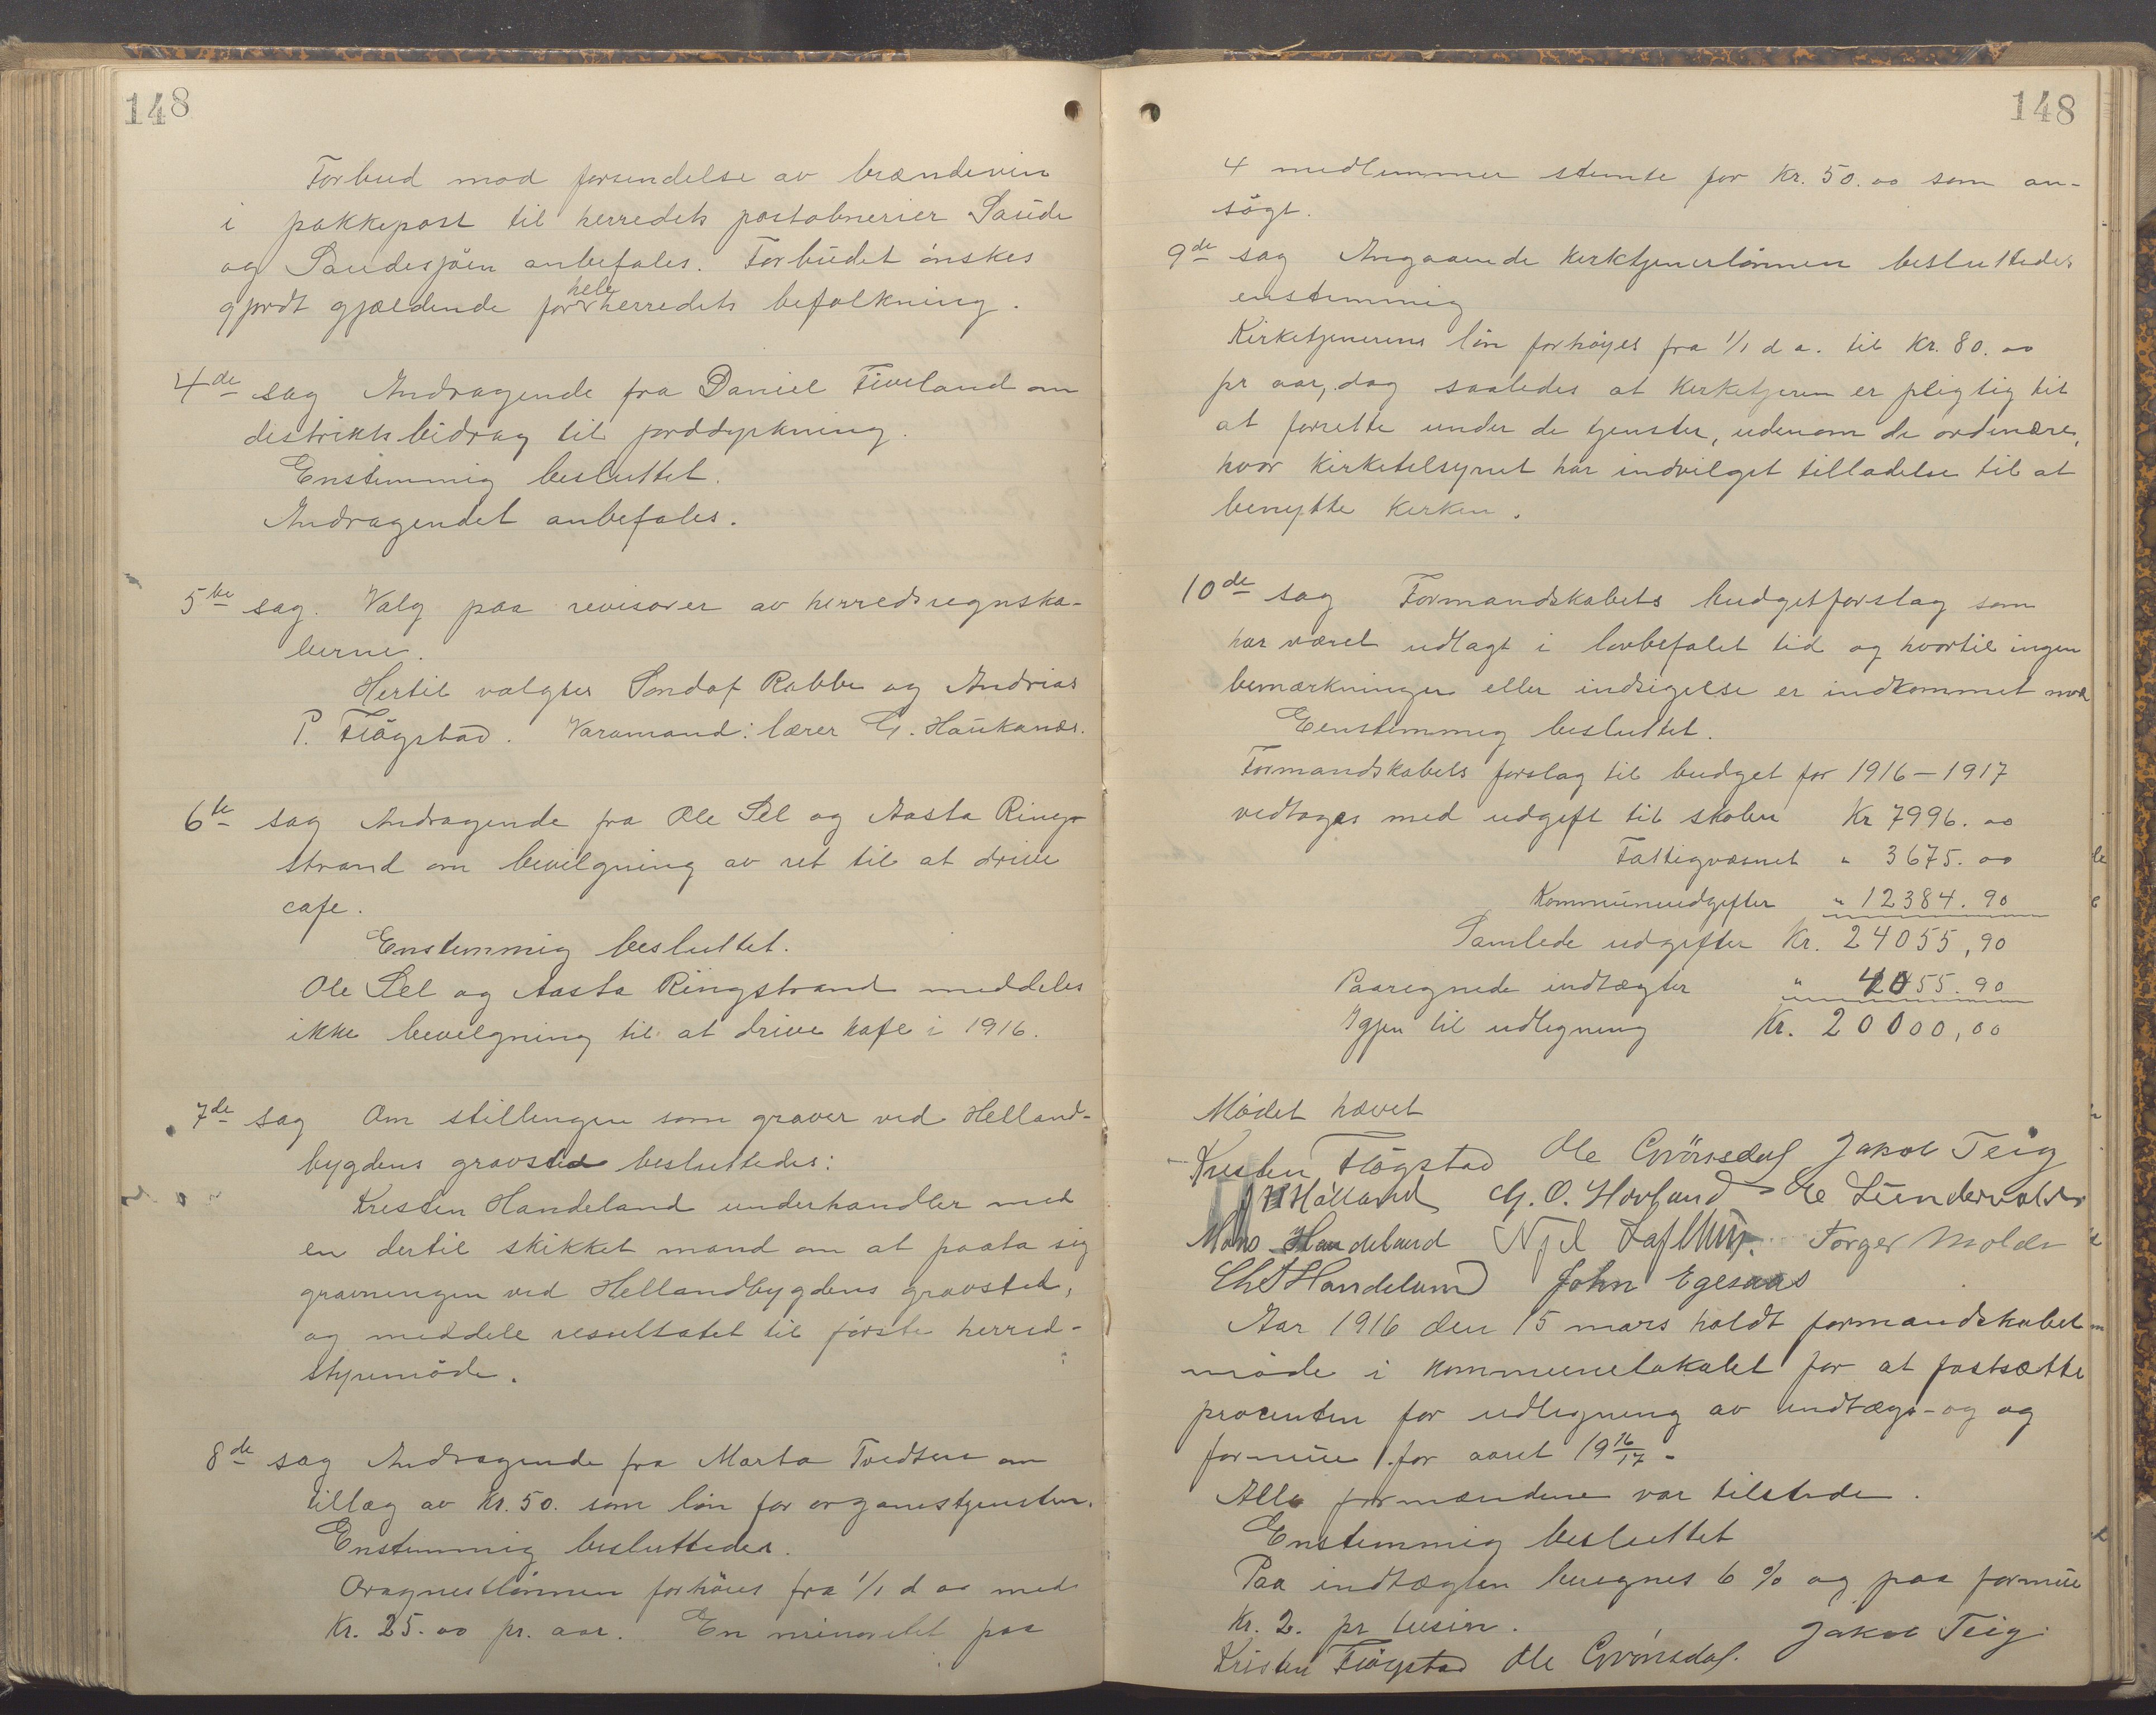 148
Forbud mod forsendelse av brændevin
i pakkepost til herredets postaabnerier Saude
og Saudesjøen anbefales. Forbudet ønskes
gjordt gjældende for hele herredets befolkning.
4de sag Andragende fra Daniel Fiveland om
distriktsbidrag til jorddyrkning.
Enstemmig besluttet.
Andragendet anbefales.
5te sag. Valg paa revisorer av herredsregnska-
berne.
Hertil valgtes Sondof Rabbe og Andrias
P. Fløgstad. Varamand: lærer G. Haukanæs.
6te sag Andragende fra Ole Sel og Aasta Ring-
strand om bevilgning av ret til at drive
cafe.
Enstemmig besluttet.
Ole Sel og Aasta Ringstrand meddeles
ikke bevilgning til at drive kafe i 1916.
7de sag Om stillingen som graver ved Helland-
bygdens gravsted besluttedes:
Kresten Handeland underhandler med
en dertil skikket mand om at paata sig
gravningen ved Hellandbygdens gravsted,
og meddele resultatet til første herred-
styremøde.
8de sag Andragende fra Marta Tvedten om
tillæg av kr. 50. som løn for organistjensten.
Enstemmig besluttedes.
Oragnestlønnen forhøies fra 1/1 d aa med
Kr. 25.00 pr. aar. En minoritet paa
148
4 medlemmer stemte for kr. 50.00 som an-
søgt.
9de sag Angaaende kerktjenerlønnen besluttedes
enstemmig
Kirketjenerens løn forhøyes fra 1/1 d a. til kr. 80.00
pr aar, dog saaledes at kerketjeren er pligtig til
at forrette under de tjenster, udenom de ordinære,
hvor kirketilsynet har indvilget tilladelse til at
benytte kerken.
10de sag Formandskabets budgetforslag som
har været udlagt i lovbefalet tid og hvortil ingen
bemærkninger eller indsigelse er indkommet mod
Eenstemmig besluttet.
Formandskabets forslag til budget for 1916-1917
vedtages med udgift til skolen Kr 7996.00
Fattigvæsnet " 3675.00
Kommuneudgifter " 12384.90
Samlede udgifter Kr. 24055,90
Paaregnede indtægter " 4055.90
Igjen til udligning Kr. 20000,00
Mødet hævet
Kristen Fløgstad Ole Grönsdal Jakob Teig
Hölland G. O. Hovland Ole Lundervold
Mons Handeland Torger Molde
Handeland John Egesaas
Aar 1916 den 15 mars holdt formandskabet
møde i kommunelokalet for at fastsætte
procenten for udligning av indtægs-og og
formue for aaret 19 16/17 -
Alle formændene var tilstede.
Enstemmig besluttet
Paa indtægten beregnes 6 % og paa formue
Kr. 2. pr tusin.
Kristen Fløgstad Ole Grönsdal. Jakob Teig